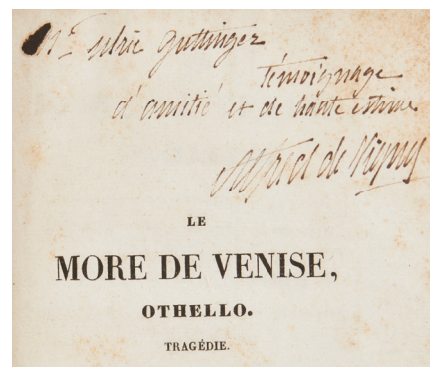 Mr. Ulric Guttinger
témoignage
d'amitié et de haute estime
Alfred de Vigny
LE
MORE DE VENISE,
OTHELLO.
TRAGÉDIE.